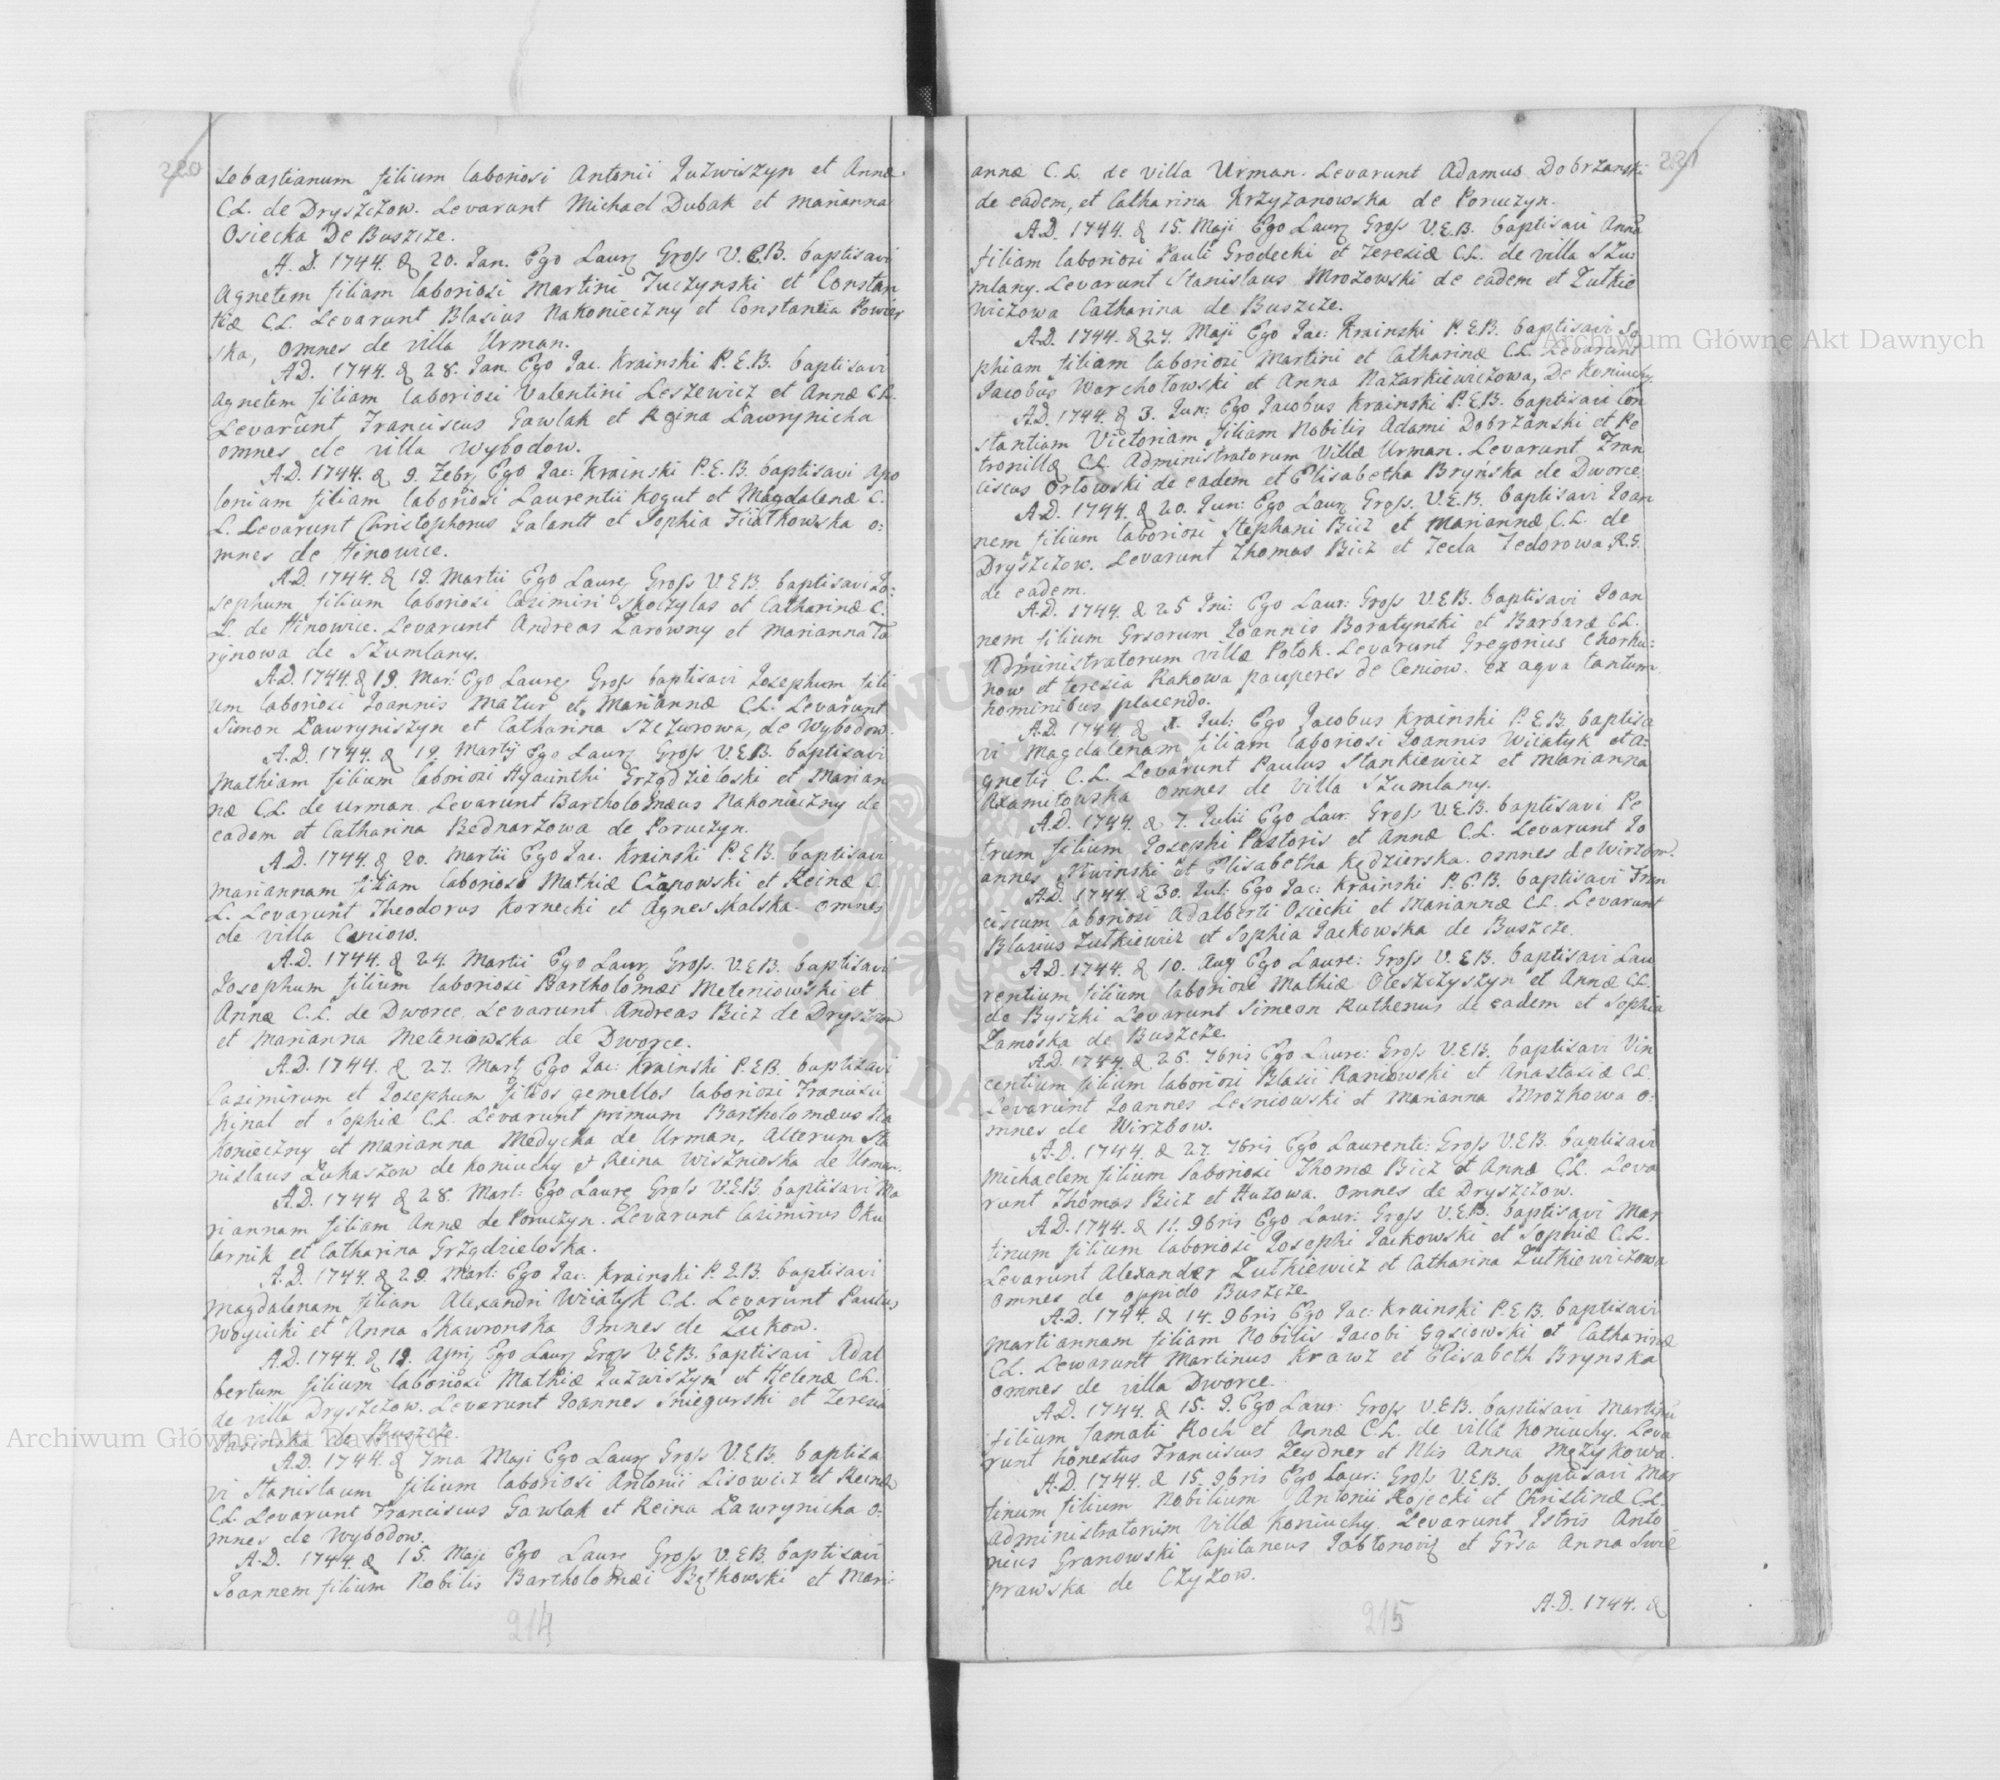 220
Sebastianum filium laboriosi Antonii Juzwiszyn et Annæ
C.L. de Dryszczow. Levarunt Michael Dubak et Marianna
Osiecka De Buszcze.
A.D. 1744. d 20. Jan. Ego Laur Gross V.E.B. baptisavi
Agnetem filiam laboriosi Martini Tuczynski et Constan
tiæ C.L. Levarunt Blasius Nakonieczny et Constantia Powier
ska, omnes de villa Urman.
A.D. 1744. d 28. Jan. Ego Jac. Krainski P.E.B. baptisavi
Agnetem filiam laboriosi Valentini Leszewicz et Annæ C.L.
Levarunt Franciscus Gawlak et Regina Ławrynicha
omnes de villa Wybodow.
A.D. 1744. d 9. Febr Ego Jac: Krainski P.E.B. baptisavi Apo
loniam filiam laboriosi Laurentii Kogut et Magdalenæ C.
L. Levarunt Christophorus Galantt et Sophia Fiiatkowska o:
mnes de Hinowice.
A.D. 1744. d 19. Martii Ego Laure Gross V.E.B. baptisavi Jo:
sephum filium laboriosi Casimiri Skoczylas et Catharinæ C.
L. de Hinowice. Levarunt Andreas Zarowny et Marianna To
rynowa de Szumlany.
A.D. 1744. d 19. Mar: Ego Laure Gross baptisavi Josephum fili
um laboriosi Joannis Mazur et Mariannæ C.L. Levarunt
Simon Ławryniszyn et Catharina Szczurowa, de Wybodow.
A.D. 1744. d 19. Martij Ego Laur Gross V.E.B. baptisavi
Mathiam filium laboriosi Hyacinthi Grzędzieloski et Marian
næ C.L. de Urman. Levarunt Bartholomæus Nakonieczny de
eadem et Catharina Bednarzowa de Poruczyn.
A.D. 1744. d 20. Martii Ego Jac. Krainski P.E.B. baptisavi
Mariannam filiam laboriosi Mathiæ Czapowski et Reinæ C.
L. Levarunt Theodorus Kornecki et Agnes Skalska. omnes
de villa Ceniow.
A.D. 1744. d 24. Martii Ego Laur Gross. V.E.B. baptisavi
Josephum filium laboriosi Bartholomæi Meteniowski et
Annæ C.L. de Dworce. Levarunt Andreas Bicz de Dryszczow
et Marianna Meteniowska de Dworce.
A.D. 1744. d 27. Mart Ego Jac: Krainski P.E.B. baptisavi
Casimirum et Josephum filios gemellos laboriosi Francisci
Kinal et Sophiæ C.L. Levarunt primum Bartholomæus Na
konieczny et Marianna Medycka de Urman, Alterum Sta
nislaus Łukaszow de Koniuchy et Reina Wisznioska de Urman.
A.D. 1744 d 28. Mart: Ego Laure Gross V.E.B. baptisavi Ma
riannam filiam Annæ de Poruczyn. Levarunt Casimirus Oku
larnik et Catharina Grzędzieloska.
A.D. 1744. d 29. Mart: Ego Jac. Krainski P.E.B. baptisavi
Magdalenam filian Alexandri Wiiatyk C.L. Levarunt Paulus
Woycicki et Anna Skawronska omnes de Zukow.
A.D. 1744. d 19. Aprij Ego Laur Gross V.E.B. baptisavi Adal
bertum filium laboriosi Mathiæ Juzwiszyn et Helenæ C.L.
de villa Dryszczow. Levarunt Joannes Sniegurski et Teresia
de Buszcze.
A.D. 1744. d 7ma Maji Ego Laur Gross V.E.B. baptisa
vi Stanislaum filium laboriosi Antonii Lisowicz et Reinæ
C.L. Levarunt Franciscus Gawlak et Reina Ławrynicha o:
mnes de Wybodow.
A.D. 1744 d 15. Maji Ego Laure Gross V.E.B. baptisavi
Joannem filium Nobilis Bartholomæi Bętkowski et Mari
214
221
annæ C.L. de villa Urman. Levarunt Adamus Dobrzanski
de eadem, et Catharina Krzyzanowska de Poruczyn.
A.D. 1744. d 15. Maji Ego Laur Gross V.E.B. baptisavi Annã
filiam laboriosi Pauli Grodecki et Teresiæ C.L. de villa Szu:
mlany. Levarunt Stanislaus Mrozowski de eadem et Zutkie
wiczowa Catharina de Buszcze.
A.D. 1744. d 27. Maji Ego Jac: Krainski P.E.B. baptisavi So
phiam filiam laboriosi Martini et Catharinæ C.L. Levarunt
Jacobus Warchołowski et Anna Nazarkiewiczowa, De Koniuchy.
A.D. 1744. d 3. Jun: Ego Jacobus Krainski P.E.B. baptisavi Con
stantiam Victoriam filiam Nobilis Adami Dobrzanski et Pe
tronillæ C.L. Administratorum Villæ Urman. Levarunt Fran
ciscus Orłowski de eadem et Elisabetha Bryńska de Dworce.
A.D. 1744. d 20. Jun: Ego Laur Gross. V.E.B. baptisavi Joan
nem filium laboriosi Stephani Bicz et Mariannæ C.L. de
Dryszczow. Levarunt Thomas Bicz et Tecla Fedorowa R.G.
de eadem.
A.D. 1744. d 25 Jni: Ego Laur: Gross V.E.B. baptisavi Joan
nem filium Grsorum Joannis Boratynski et Barbaræ C.L.
Administratorum villæ Potok. Levarunt Gregorius Chorku:
now et teresia Rakowa pauperes de Ceniow. ex aqva tantum
hominibus placendo.
A.D. 1744. d 1. Jul: Ego Jacobus Krainski P.E.B. baptisa
vi Magdalenam filiam laboriosi Joannis Wiiatyk et A:
gnetis C.L. Levarunt Paulus Stankiewicz et Marianna
Axamitowska omnes de villa Szumlany.
A.D. 1744. d 7. Julii Ego Laur. Gross V.E.B. baptisavi Pe
trum filium Josephi Pastoris et Annæ C.L. Levarunt Jo
annes Niwinski et Elisabetha Kędzierska. omnes de Wirzbow.
A.D. 1744. d 30. Jul: Ego Jac: Krainski P.E.B. baptisavi Fran
ciscum laboriosi Adalberti Osiecki et Mariannæ C.L. Levarunt
Blasius Zutkiewicz et Sophia Jackowska de Buszcze.
A.D. 1744. d 10. Aug Ego Laure: Gross V.E.B. baptisavi Lau
rentium filium laboriosi Mathiæ Oleszczyszyn et Annæ C.L.
de Byszki Levarunt Simeon Ruthenus de eadem et Sophia
Zamoska de Buszcze.
A.D. 1744 d 26. 7bris Ego Laure: Gross V.E.B. baptisavi Vin
centium filium laboriosi Blasii Raniowski et Anastasiæ C.L.
Levarunt Joannes Lesniowski et Marianna Mrozkowa o:
mnes de Wirzbow.
A.D. 1744. d 27. 7bris Ego Laurenti: Gross V.E.B. baptisavi
Michaelem filium laboriosi Thomæ Bicz et Annæ C.L. Leva
runt Thomas Bicz et Huzowa. omnes de Dryszczow.
A.D. 1744. d 11. 9bris Ego Laur: Gross V.E.B. baptisavi Mar
tinum filium laboriosi Josephi Jackowski et Sophiæ C.L.
Levarunt Alexander Zutkiewicz et Catharina Zutkiewiczowa
omnes de oppido Buszcze.
A.D. 1744. d 14. 9bris Ego Jac: Krainski P.E.B. baptisavi
Martiannam filiam Nobilis Jacobi Gąsiowski et Catharinæ
C.L. Lewarunt Martinus Krawz et Elisabeth Brynska
omnes de villa Dworce.
A.D. 1744. d 15. 9. Ego Laur: Gross V.E.B. baptisavi Martinũ
filium famati Roch et Annæ C.L. de villa Koniuchy. Leva
runt honestus Franciscus Zeydner et Nlis Anna Męzykowa.
A.D. 1744. d 15. 9bris Ego Laur: Gross V.E.B. baptisavi Mar
tinum filium Nobilium Antonii Rojecki et Christinæ C.L.
Administratorum villæ Koniuchy. Levarunt Jstris Anto
nius Granowski Capitaneus Jabłonovij et Grsa Anna Swie
prawska de Czyzow.
A.D. 1744. d
215
Archiwum Główne Akt Dawnych
Archiwum Główne Akt Dawnych